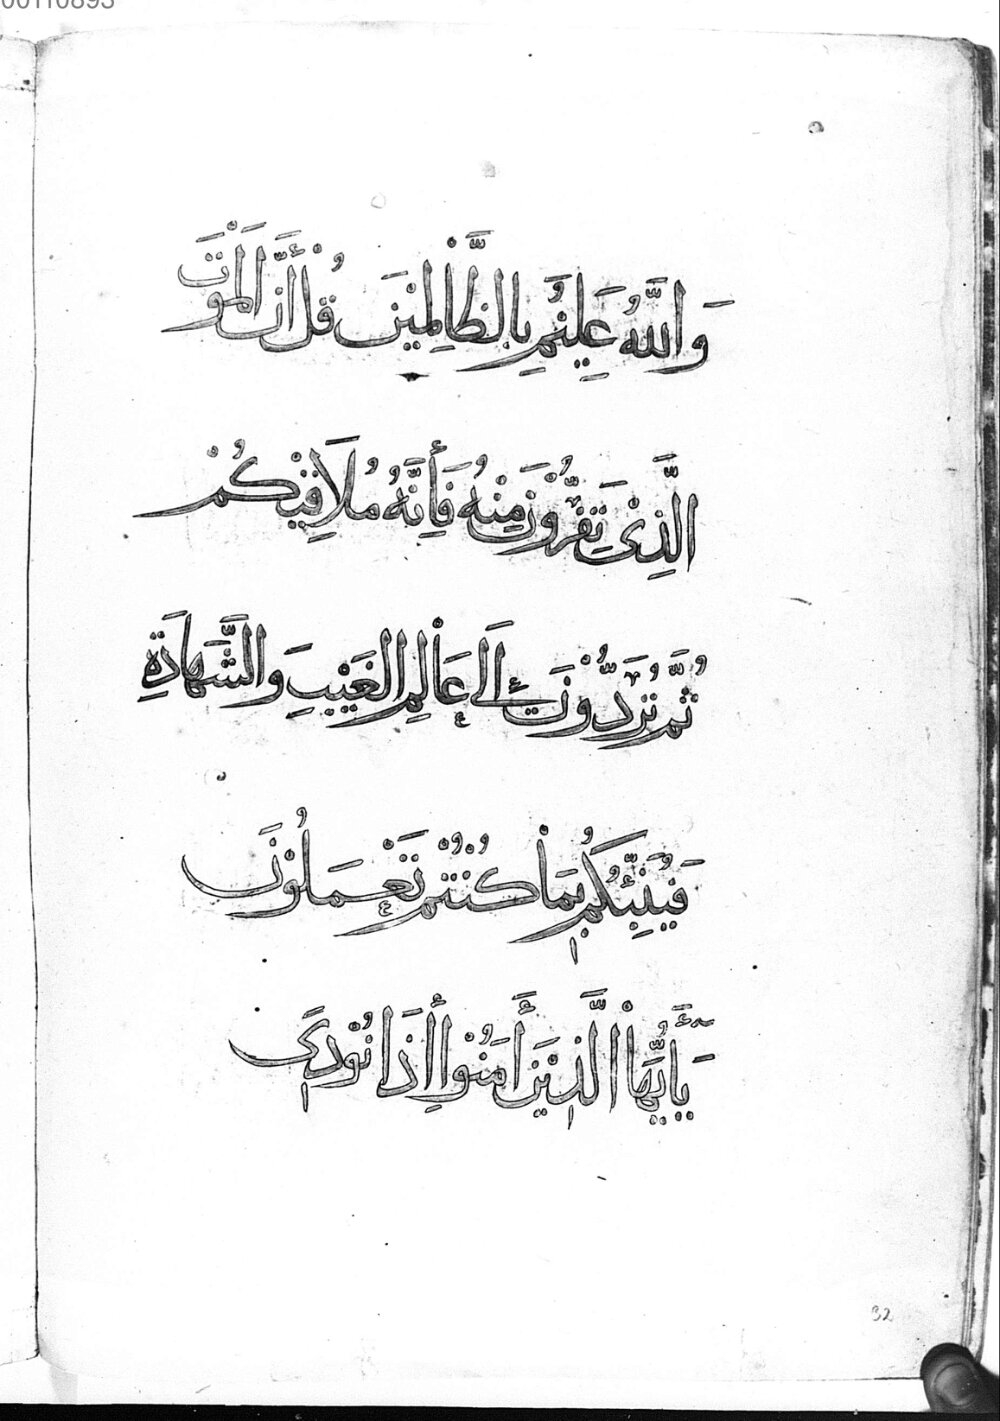 00110893
وَاللَّهُ عَلِيْمٌ بِالظَّالِمِيْنَ قُلْ أِنَّ الْمَوْتَ
الَّذِىْ تَفِرُّوْنَ مِنْهُ فَأِنَّهُ مُلَاقِيْكُمْ
ثُمَّ تُرَدُّوْنَ إِلَى عَالِمِ الْغَيْبِ وَالشَّهَادَةِ
فَيُنَبِّئُكُمْ بِمَا كُنْتُمْ تَعْمَلُوْنَ
يَٓأَيُّهَا الَّذِيْنَ أَمَنُوْا أِذَا نُوْدِىَ
32